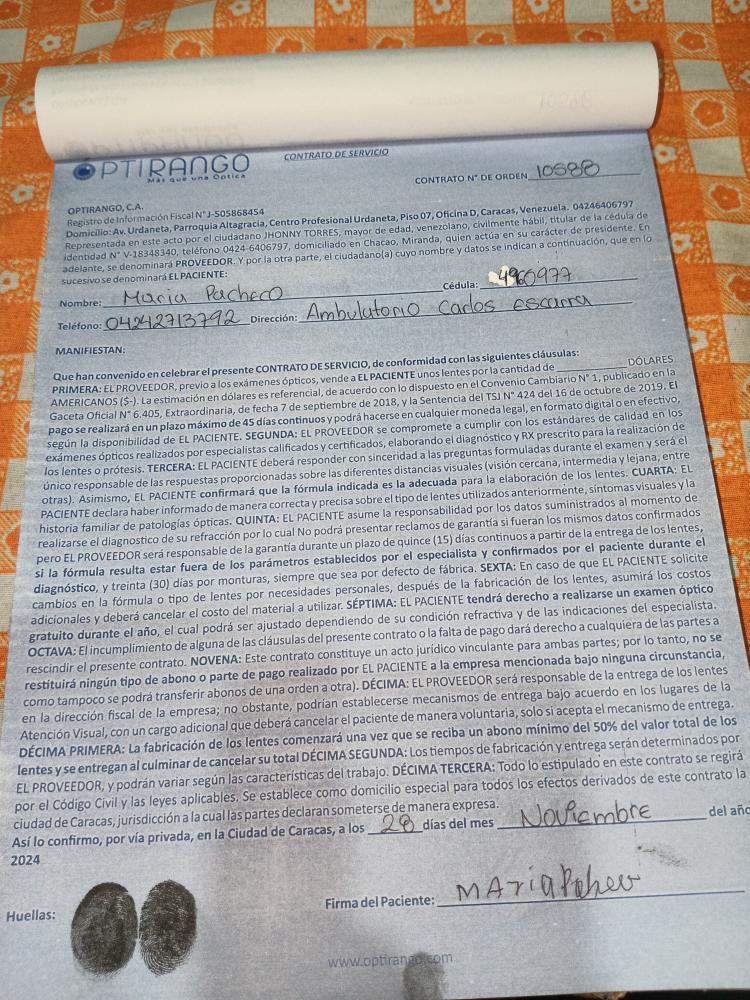 OPTIRANGO
Más que una Óptica
CONTRATO DE SERVICIO
CONTRATO N° DE ORDEN 10588
OPTIRANGO, C.A.
Registro de Información Fiscal N° J-505868454
Domicilio: Av. Urdaneta, Parroquia Altagracia, Centro Profesional Urdaneta, Piso 07, Oficina D, Caracas, Venezuela. 04246406797
Representada en este acto por el ciudadano JHONNY TORRES, mayor de edad, venezolano, civilmente hábil, titular de la cédula de
identidad N° V-18348340, teléfono 0424-6406797, domiciliado en Chacao, Miranda, quien actúa en su carácter de presidente. En
adelante, se denominará PROVEEDOR. Y por la otra parte, el ciudadano(a) cuyo nombre y datos se indican a continuación, que en lo
sucesivo se denominará EL PACIENTE:
Nombre: Maria Pacheco Cédula: 4960977
Teléfono: 04242713792 Dirección: Ambulatorio Carlos escarra
MANIFIESTAN:
Que han convenido en celebrar el presente CONTRATO DE SERVICIO, de conformidad con las siguientes cláusulas:
PRIMERA: EL PROVEEDOR, previo a los exámenes ópticos, vende a EL PACIENTE unos lentes por la cantidad de DÓLARES
AMERICANOS ($-). La estimación en dólares es referencial, de acuerdo con lo dispuesto en el Convenio Cambiario N° 1, publicado en la
Gaceta Oficial N° 6.405, Extraordinaria, de fecha 7 de septiembre de 2018, y la Sentencia del TSJ N° 424 del 16 de octubre de 2019. El
pago se realizará en un plazo máximo de 45 días continuos y podrá hacerse en cualquier moneda legal, en formato digital o en efectivo,
según la disponibilidad de EL PACIENTE. SEGUNDA: EL PROVEEDOR se compromete a cumplir con los estándares de calidad en los
exámenes ópticos realizados por especialistas calificados y certificados, elaborando el diagnóstico y RX prescrito para la realización de
los lentes o prótesis. TERCERA: EL PACIENTE deberá responder con sinceridad a las preguntas formuladas durante el examen y será el
único responsable de las respuestas proporcionadas sobre las diferentes distancias visuales (visión cercana, intermedia y lejana, entre
otras). Asimismo, EL PACIENTE confirmará que la fórmula indicada es la adecuada para la elaboración de los lentes. CUARTA: EL
PACIENTE declara haber informado de manera correcta y precisa sobre el tipo de lentes utilizados anteriormente, síntomas visuales y la
historia familiar de patologías ópticas. QUINTA: EL PACIENTE asume la responsabilidad por los datos suministrados al momento de
realizarse el diagnostico de su refracción por lo cual No podrá presentar reclamos de garantía si fueran los mismos datos confirmados
pero EL PROVEEDOR será responsable de la garantía durante un plazo de quince (15) días continuos a partir de la entrega de los lentes,
si la fórmula resulta estar fuera de los parámetros establecidos por el especialista y confirmados por el paciente durante el
diagnóstico, y treinta (30) días por monturas, siempre que sea por defecto de fábrica. SEXTA: En caso de que EL PACIENTE solicite
cambios en la fórmula o tipo de lentes por necesidades personales, después de la fabricación de los lentes, asumirá los costos
adicionales y deberá cancelar el costo del material a utilizar. SÉPTIMA: EL PACIENTE tendrá derecho a realizarse un examen óptico
gratuito durante el año, el cual podrá ser ajustado dependiendo de su condición refractiva y de las indicaciones del especialista.
OCTAVA: El incumplimiento de alguna de las cláusulas del presente contrato o la falta de pago dará derecho a cualquiera de las partes a
rescindir el presente contrato. NOVENA: Este contrato constituye un acto jurídico vinculante para ambas partes; por lo tanto, no se
restituirá ningún tipo de abono o parte de pago realizado por EL PACIENTE a la empresa mencionada bajo ninguna circunstancia,
como tampoco se podrá transferir abonos de una orden a otra). DÉCIMA: EL PROVEEDOR será responsable de la entrega de los lentes
en la dirección fiscal de la empresa; no obstante, podrían establecerse mecanismos de entrega bajo acuerdo en los lugares de la
Atención Visual, con un cargo adicional que deberá cancelar el paciente de manera voluntaria, solo si acepta el mecanismo de entrega.
DÉCIMA PRIMERA: La fabricación de los lentes comenzará una vez que se reciba un abono mínimo del 50% del valor total de los
lentes y se entregan al culminar de cancelar su total DÉCIMA SEGUNDA: Los tiempos de fabricación y entrega serán determinados por
EL PROVEEDOR, y podrán variar según las características del trabajo. DÉCIMA TERCERA: Todo lo estipulado en este contrato se regirá
por el Código Civil y las leyes aplicables. Se establece como domicilio especial para todos los efectos derivados de este contrato la
ciudad de Caracas, jurisdicción a la cual las partes declaran someterse de manera expresa.
Así lo confirmo, por vía privada, en la Ciudad de Caracas, a los 28 días del mes Noviembre del año
2024
Huellas:
Firma del Paciente: Maria Pacheco
www.optirango.com